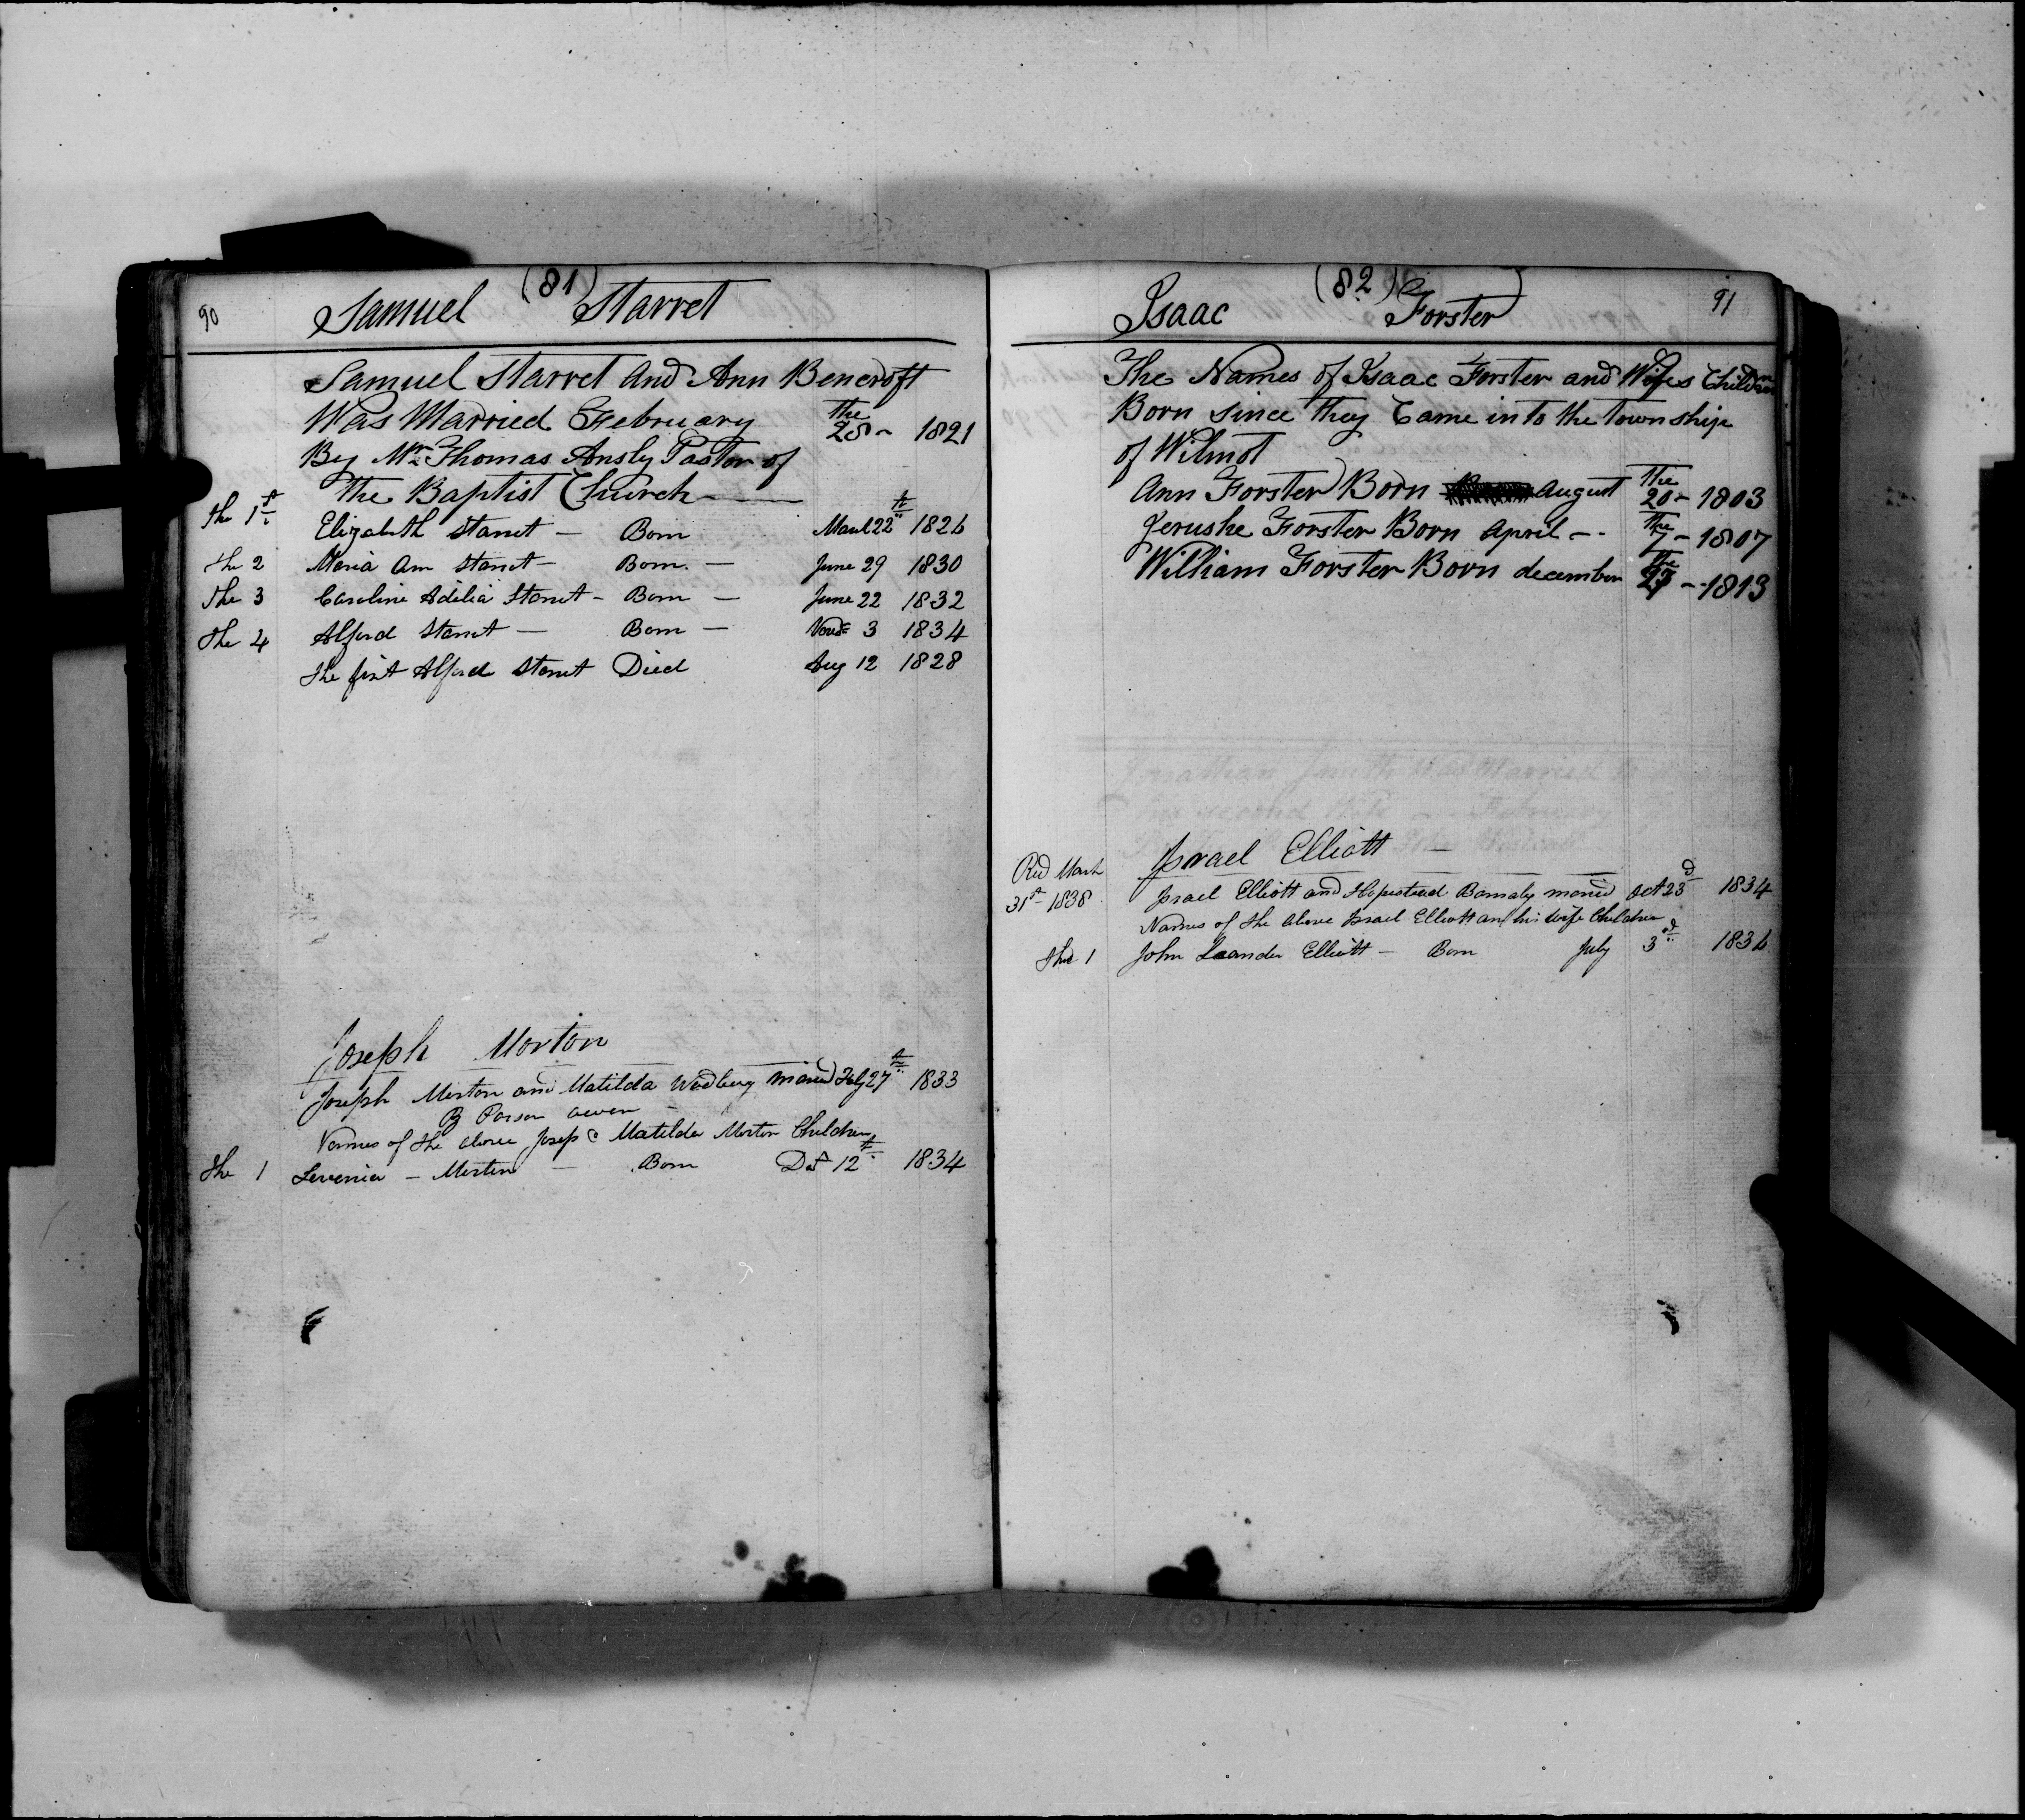 90
(81)
Samuel Starret
Samuel Starret And Ann Bencroft
Was Married February the 28 - 1821
By Mr Thomas Ansly Pastor of
the Baptist Church
the 1st Elizabeth Starret - Born March 22 1826
the 2 Maria Ann Starret - Born - June 29 1830
The 3 Caroline Adelia Starret - Born - June 22 1832
the 4 Alford Starret - Born - Novr 3 1834
the first Alford Starret Died Aug 12 1828
Joseph Morton
Joseph Morton and Matilda married Feby 27th 1833
By Parson Owen -
Names of the above Josep & Matilda Morton Children
the 1 Levenia - Morton - Born 12th 1834
91
(82)
Isaac Forster
The Names of Isaac Forster and Wifes Children
Born since they Came into the township
of Wilmot
Ann Forster Born August the 20 - 1803
Jerushe Forster Born April - the 7 - 1807
William Forster Born december the - 1813
Israel Elliott -
Recd March
31st 1838
Israel Elliott and married Oct 23d 1834
Names of the above Israel Elliott and his wife Children
the 1 John Leander Elliott - Born July 3d 1836